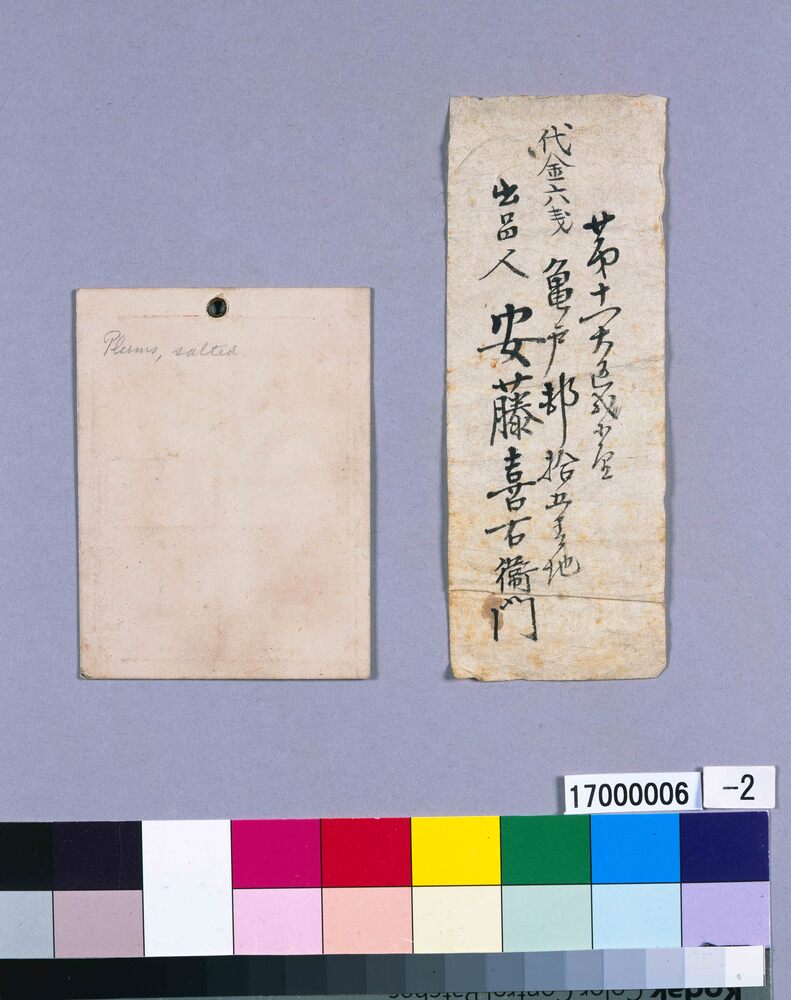 Plums, salted
第十一大区弐小区
代金六戋 亀戸邨拾五番地
出品人 安藤喜右衛門
17000006
-2
Kodak Color Control Patches